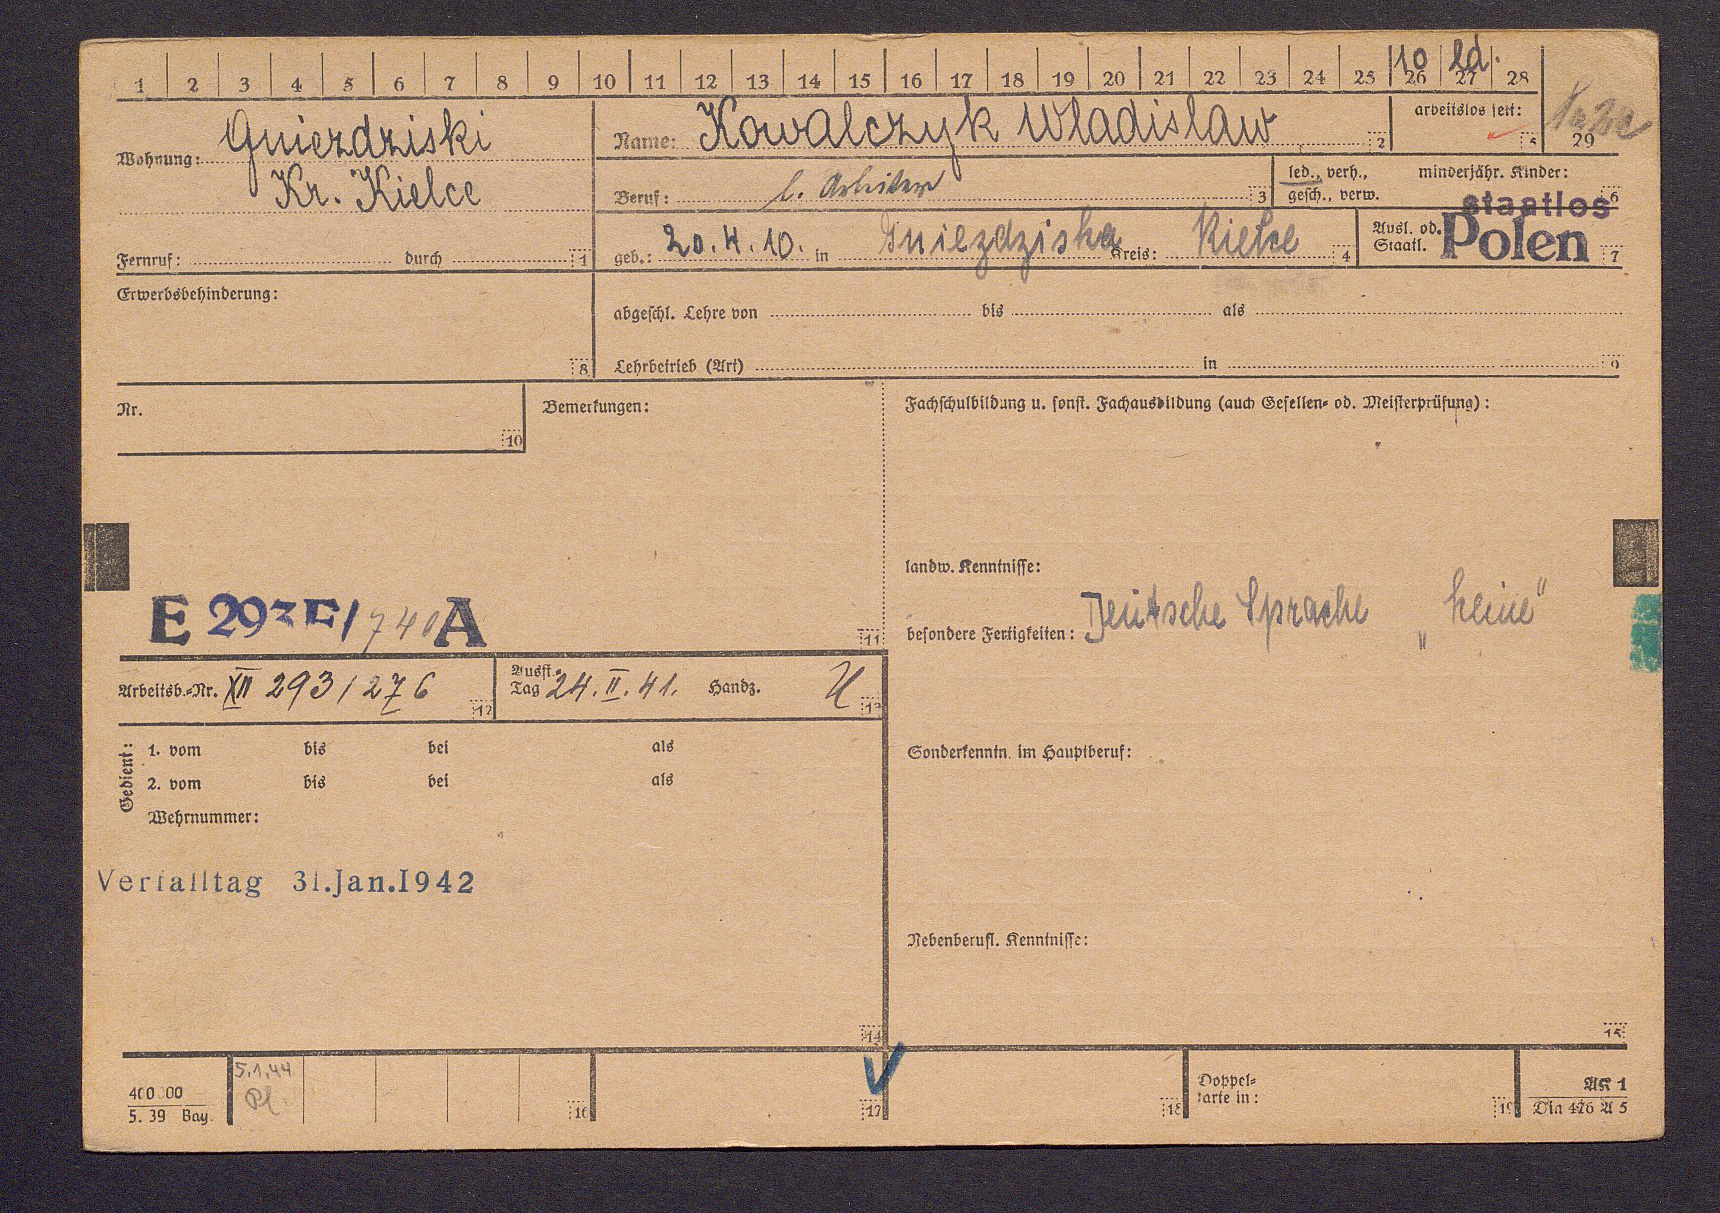 10 ld.
1 2 3 4 5 6 7 8 9 10 11 12 13 14 15 16 17 18 19 20 21 22 23 24 25 26 27 28
29
Wohnung: Gniezdziski
Kr. Kielce
Fernruf: durch 1
Name: Kowalczyk Wladislaw 2
arbeitslos seit: 5
Beruf: l. Arbeiter 3
led., verh., gesch., verw.
minderjähr. Kinder: 6
geb.: 20.4.10. in Gniezdziska Kreis: Kielce 4
Ausl. od. Staatl. staatlos Polen 7
Erwerbsbehinderung: 8
abgeschl. Lehre von bis als
Lehrbetrieb (Art) in 9
Nr. 10
Bemerkungen:
E 293E/740A
11
Fachschulbildung u. sonst. Fachausbildung (auch Gesellen- od. Meisterprüfung):
landw. Kenntnisse:
besondere Fertigkeiten: Deutsche Sprache „keine“
Arbeitsb.-Nr. XII 293/276 12
Ausst.-Tag 24.II.41. Handz. 13
Gedient:
1. vom bis bei als
2. vom bis bei als
Wehrnummer:
Verfalltag 31.Jan.1942
14
Sonderkenntn. im Hauptberuf:
Nebenberufl. Kenntnisse:
15
400000
5. 39 Bay.
5.1.44
16
17
18
Doppel-
karte in: 19
AK 1
Din 476 A 5